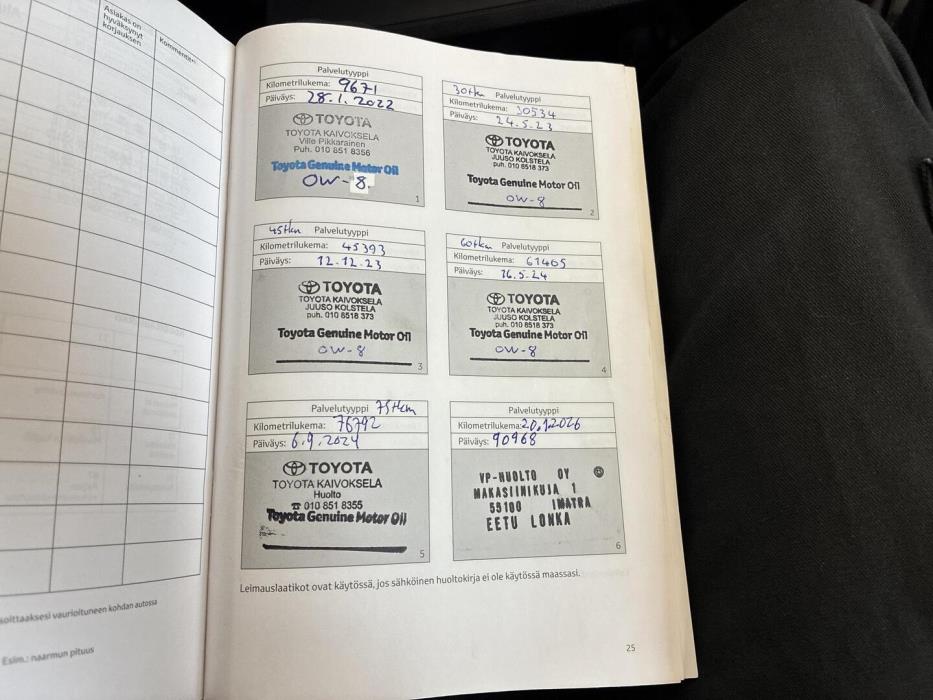 Asiakas on
hyväksynyt
korjauksen
Kommentteja
Palvelutyyppi
Kilometrilukema: 9671
Päiväys: 28.1.2022
TOYOTA
TOYOTA KAIVOKSELA
Ville Pikkarainen
Puh. 010 851 8356
Toyota Genuine Motor Oil
OW-8
1
30tkm Palvelutyyppi
Kilometrilukema: 30534
Päiväys: 24.5.23
TOYOTA
TOYOTA KAIVOKSELA
JUUSO KOLSTELA
puh. 010 8518 373
Toyota Genuine Motor Oil
OW-8
2
45tkm Palvelutyyppi
Kilometrilukema: 45393
Päiväys: 12.12.23
TOYOTA
TOYOTA KAIVOKSELA
JUUSO KOLSTELA
puh. 010 8518 373
Toyota Genuine Motor Oil
OW-8
3
60tkm Palvelutyyppi
Kilometrilukema: 61465
Päiväys: 16.5.24
TOYOTA
TOYOTA KAIVOKSELA
JUUSO KOLSTELA
puh. 010 8518 373
Toyota Genuine Motor Oil
OW-8
4
Palvelutyyppi 75tkm
Kilometrilukema: 76792
Päiväys: 6.9.2024
TOYOTA
TOYOTA KAIVOKSELA
Huolto
☎ 010 851 8355
Toyota Genuine Motor Oil
5
Palvelutyyppi
Kilometrilukema: 20.1.2026
Päiväys: 90968
VP-HUOLTO OY
MAKASIINIKUJA 1
55100 IMATRA
EETU LONKA
6
Leimauslaatikot ovat käytössä, jos sähköinen huoltokirja ei ole käytössä maassasi.
soittaaksesi vaurioituneen kohdan autossa
Esim.: naarmun pituus
25